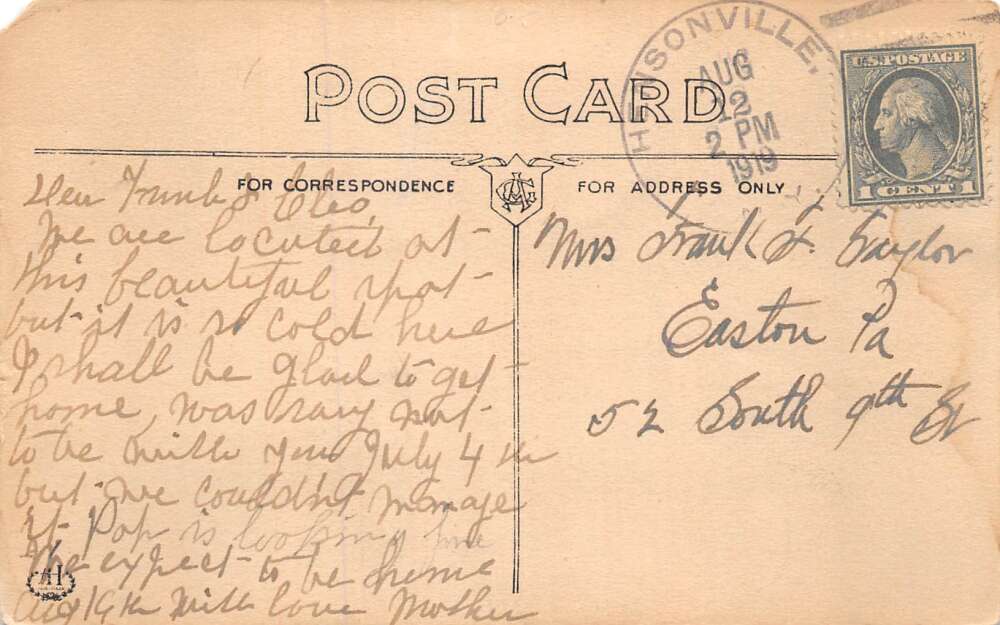 POST CARD
FOR CORRESPONDENCE
FOR ADDRESS ONLY
HENSONVILLE,
AUG
12
2 PM
1919
U.S. POSTAGE
1 CENT 1
Dear Frank & Cleo,
We are located at
this beautiful spot
but it is so cold here
I shall be glad to get
home, was sorry not
to be with you July 4th
but we couldn't manage
it Pop is looking fine
We expect to be home
Aug 19th With love Mother
Mrs Frank F. Taylor
Easton Pa
52 South 9th St